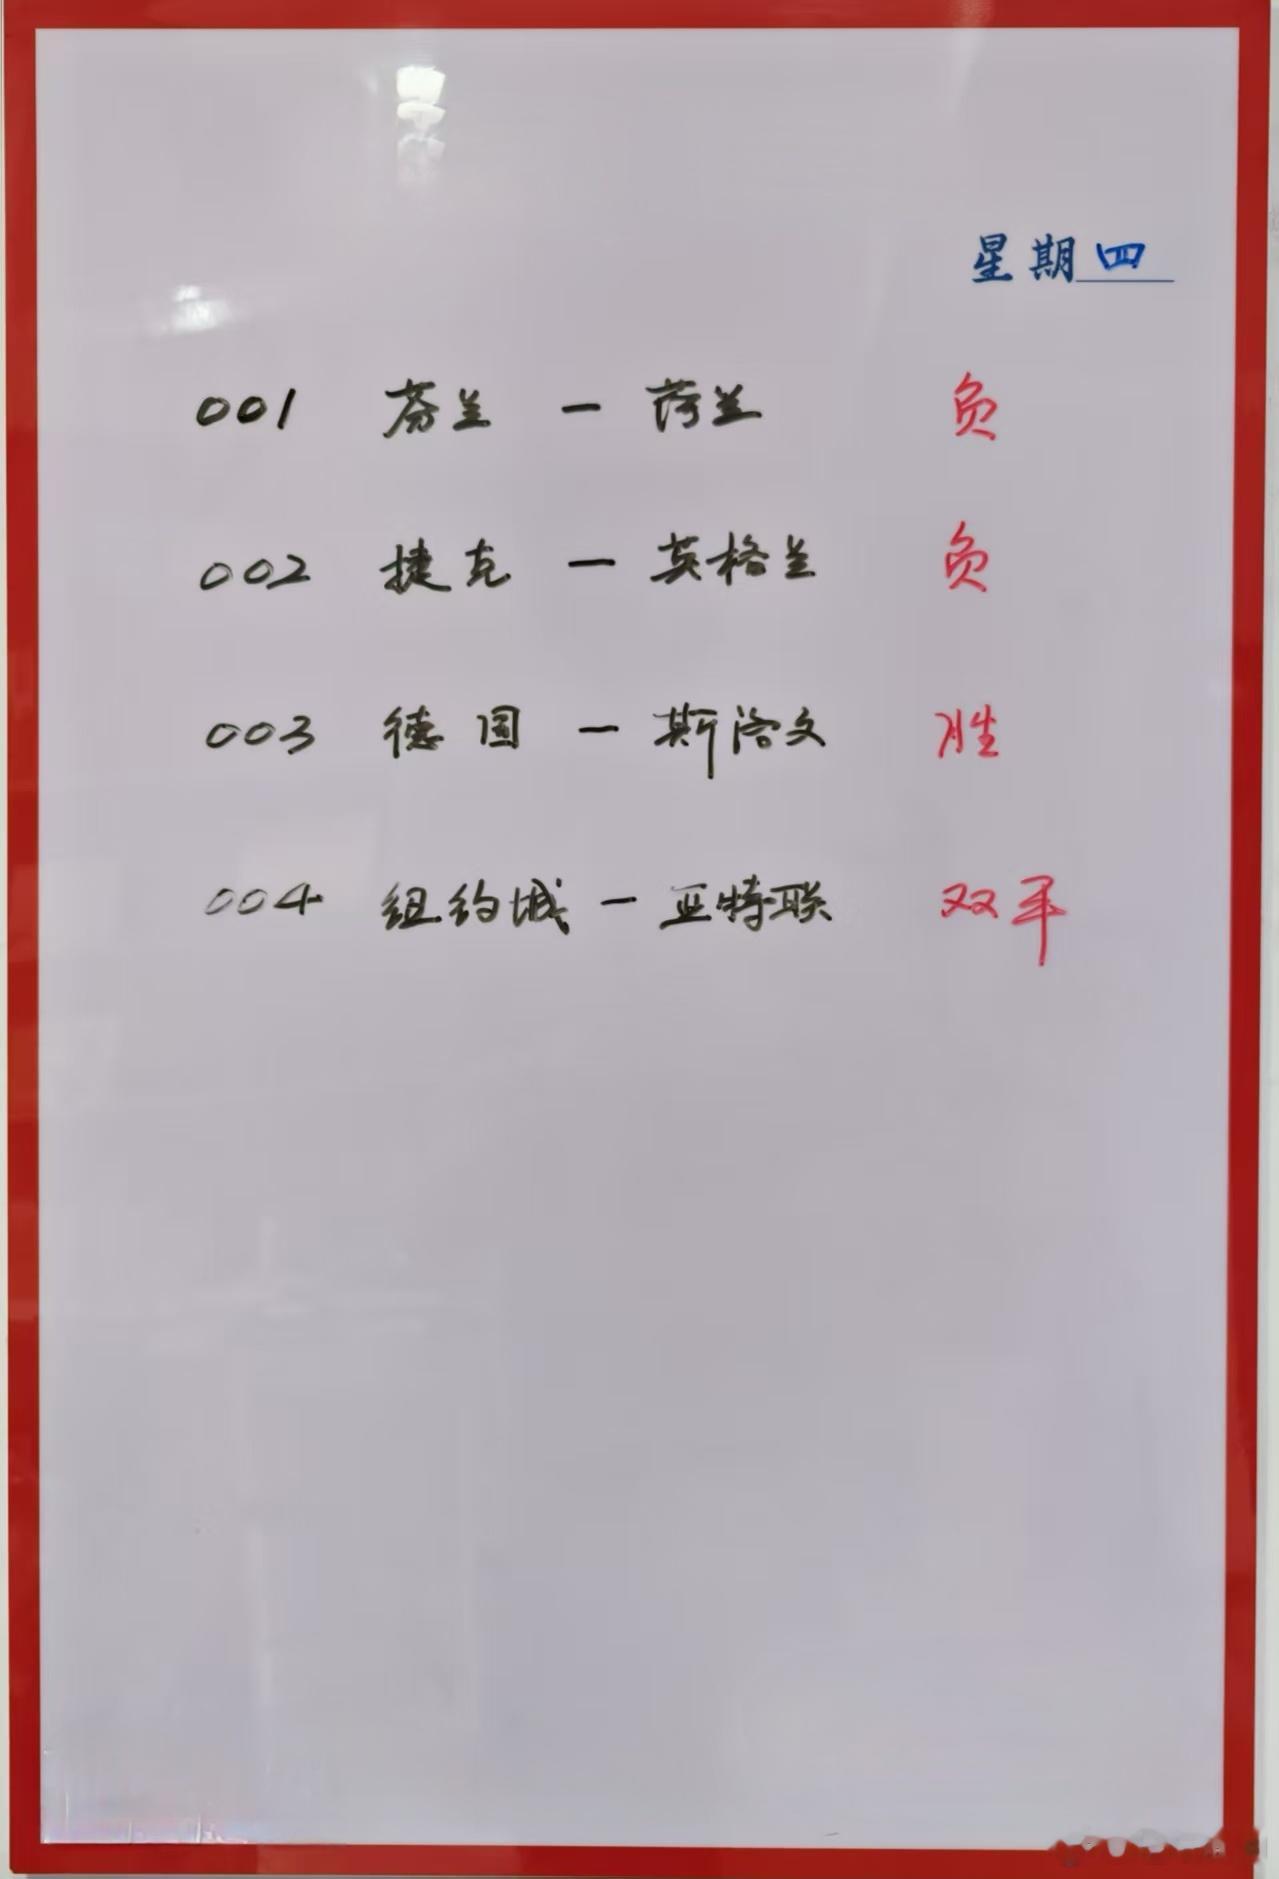 星期四
001 芬兰 — 荷兰 负
002 捷克 — 英格兰 负
003 德国 — 斯洛文 胜
004 纽约城 — 亚特联 双平